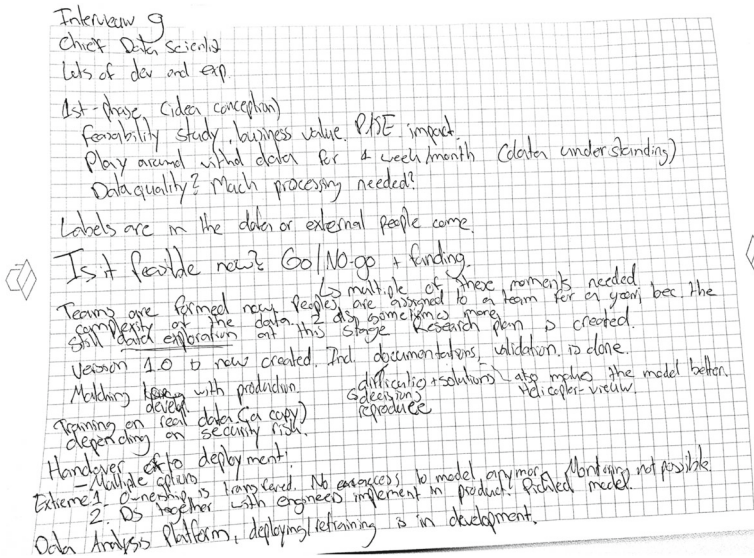 Interview 9
Chief Data Scientist
Lots of dev and exp.
1st-phase (idea conception)
feasability study, business value, impact.
Play around with data for 1 week/month (data understanding)
Data quality? Much processing needed?
Labels are in the data or external people come.
Is it feasible now? Go/No-go + funding.
↳ multiple of these moments needed
Teams are formed now, People are assigned to a team for a year, bec. the
complexity of the data, & also sometimes more.
Still data exploration at this stage Research plan is created.
Version 1.0 is now created. Incl. documentations, validation is done.
Matching with production. difficulties + solutions also makes the model better.
devel. decisions Helicopter-view.
Training on real data (a copy) reproduce
depending on security risk.
Handover to deployment:
- Multiple options
Extreme 1. Ownership is transfered. No access to model anymore. Monitoring not possible.
2. DS together with engineers implement in product. Pickled model.
Data Analysis Platform, deploying/retraining is in development.